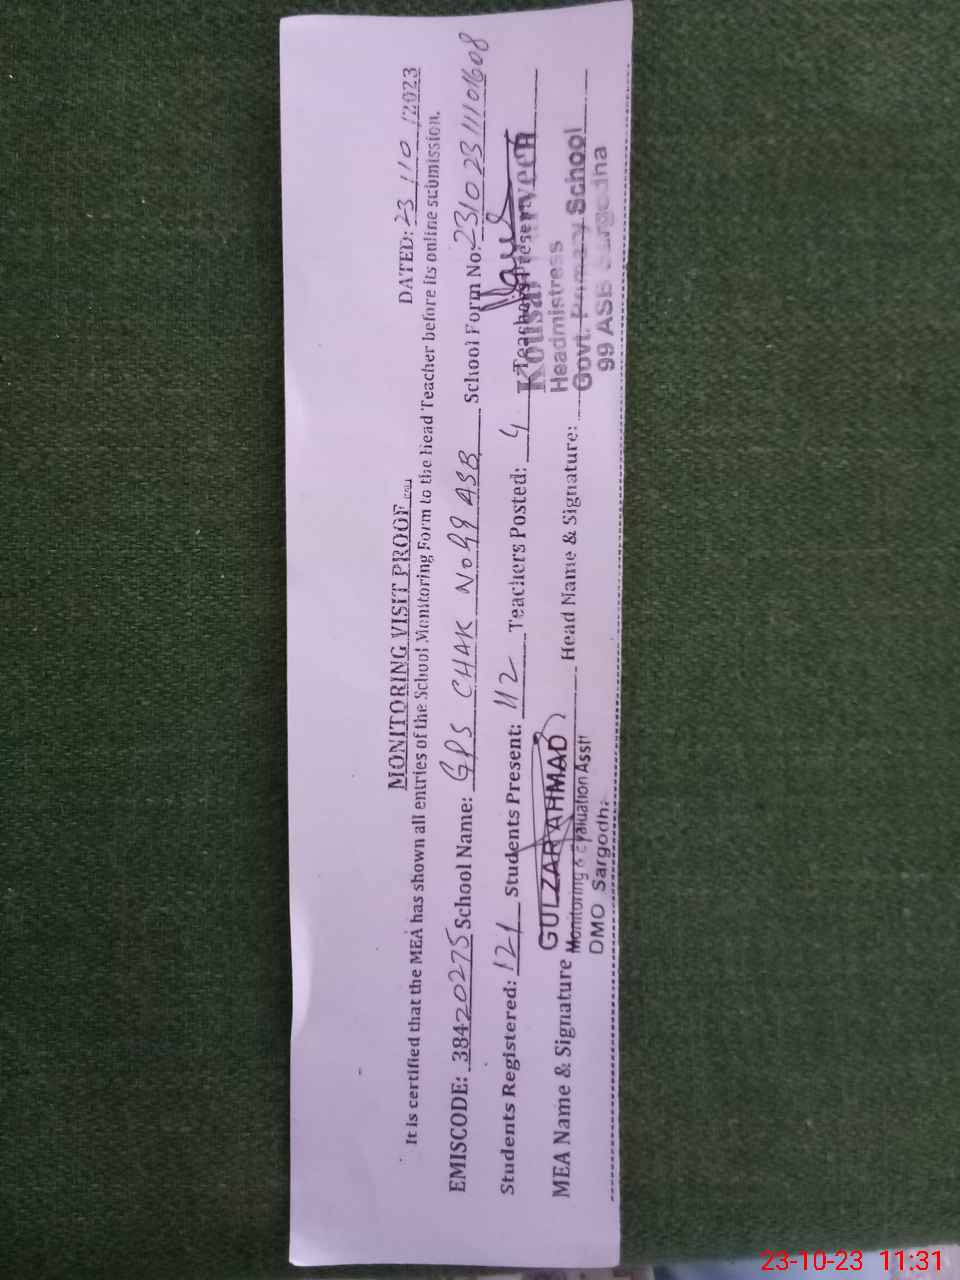 MONITORING VISIT PROOF
DATED: 23/10/2023
It is certified that the MEA has shown all entries of the School Monitoring Form to the Head Teacher before its online submission.
EMISCODE: 38420275 School Name: GPS CHAK No 99 ASB School Form No: 231023111101608
Students Registered: 121 Students Present: 112 Teachers Posted: 4 Teachers Present
MEA Name & Signature GULZAR AHMAD Head Name & Signature:
Monitoring & Evaluation Asstt
DMO Sargodha
Kousar Parveen
Headmistress
Govt. Primary School
99 ASB Sargodha
23-10-23 11:31